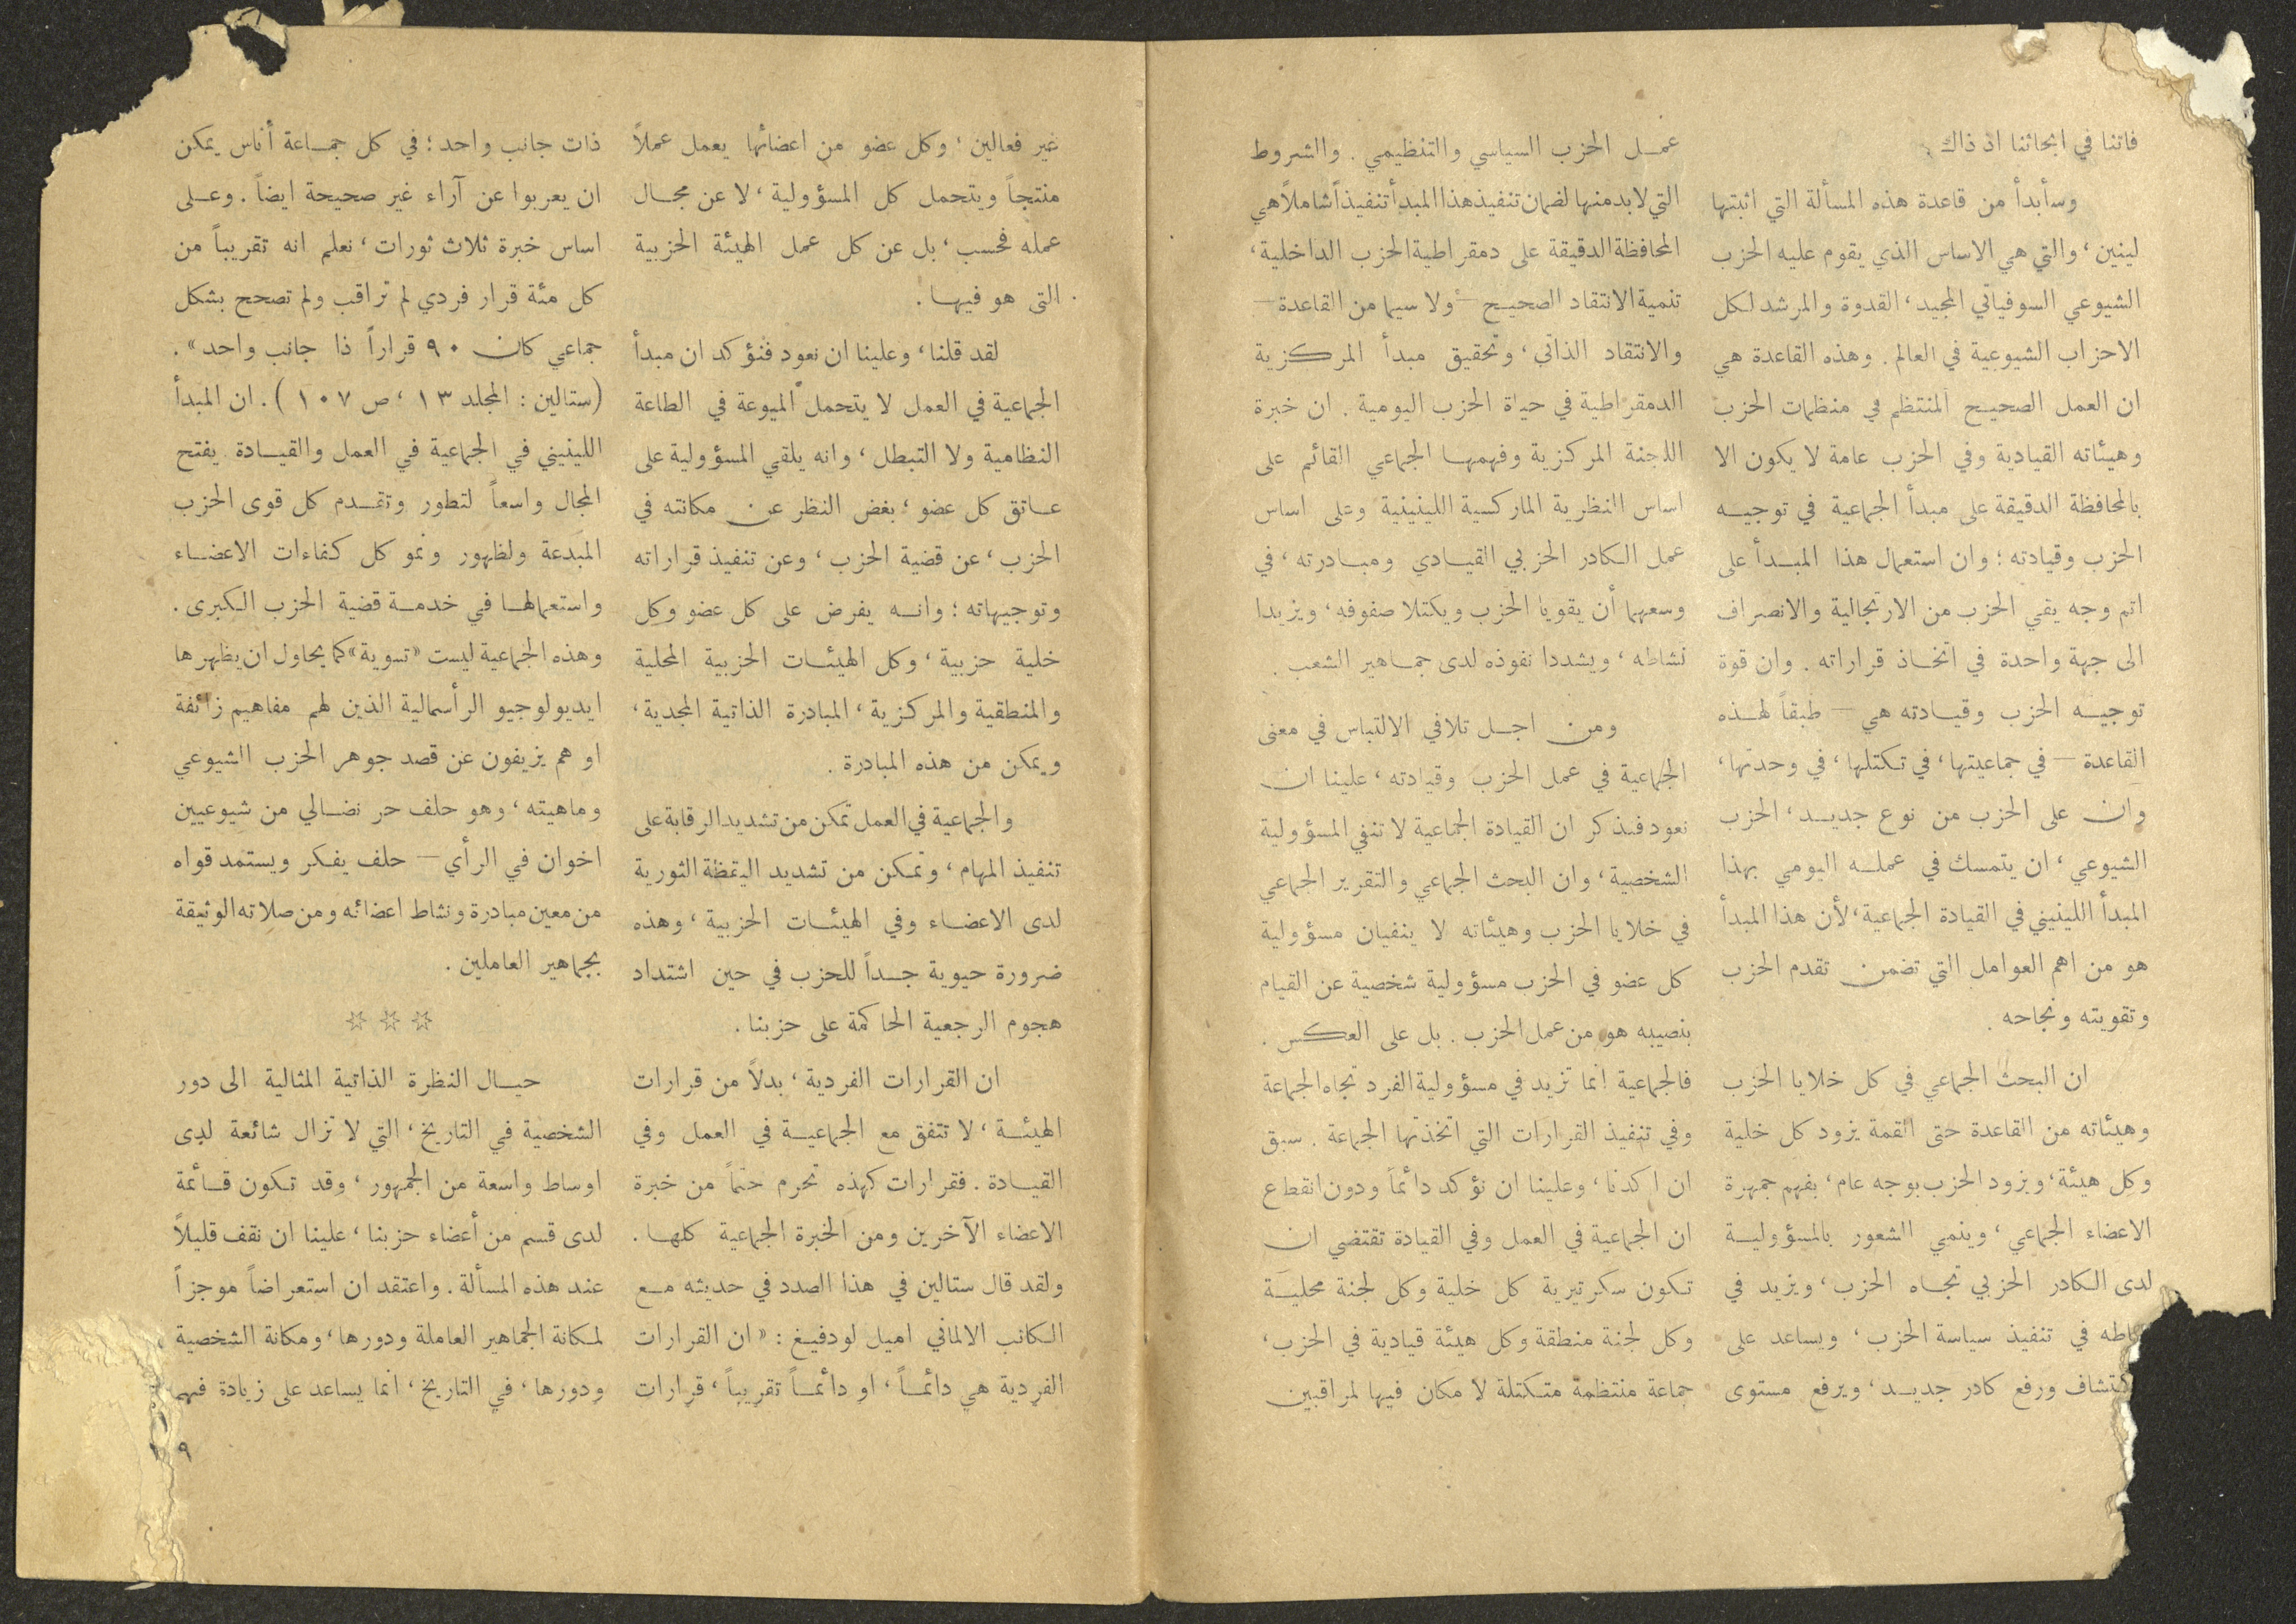 فاتنا في ابحاثنا اذ ذاك .
وسأبدأ من قاعدة هذه المسألة التي اثبتها
لينين ، والتي هي الاساس الذي يقوم عليه الحزب
الشيوعي السوفياتي المجيد ، القدوة والمرشد لكل
الاحزاب الشيوعية في العالم . وهذه القاعدة هي
ان العمل الصحيح المنتظم في منظمات الحزب
وهيئاته القيادية وفي الحزب عامة لا يكون الا
بالمحافظة الدقيقة على مبدأ الجماعية في توجيه
الحزب وقيادته ؛ وان استعمال هذا المبدأ على
اتم وجه يقي الحزب من الارتجالية والانصراف
الى جهة واحدة في اتخاذ قراراته . وان قوة
توجيه الحزب وقيادته هي — طبقاً لهذه
القاعدة — في جماعيتها ، في تكتلها ، في وحدتها ،
وان على الحزب من نوع جديد ، الحزب
الشيوعي ، ان يتمسك في عمله اليومي بهذا
المبدأ اللينيني في القيادة الجماعية ، لأن هذا المبدأ
هو من اهم العوامل التي تضمن تقدم الحزب
وتقويته ونجاحه .
ان البحث الجماعي في كل خلايا الحزب
وهيئاته من القاعدة حتى القمة يزود كل خلية
وكل هيئة ، ويزود الحزب بوجه عام ، بفهم جمهرة
الاعضاء الجماعي ، وينمي الشعور بالمسؤولية
لدى الكادر الحزبي تجاه الحزب ، ويزيد في
ـاطه في تنفيذ سياسة الحزب ، ويساعد على
كتشاف ورفع كادر جديد ، ويرفع مستوى
عمل الحزب السياسي والتنظيمي . والشروط
التي لابد منها لضمان تنفيذ هذا المبدأ تنفيذاً شاملاً هي
المحافظة الدقيقة على دمقراطية الحزب الداخلية ،
تنمية الانتقاد الصحيح — ولا سيما من القاعدة —
والانتقاد الذاتي ، وتحقيق مبدأ المركزية
الدمقراطية في حياة الحزب اليومية . ان خبرة
اللجنة المركزية وفهمها الجماعي القائم على
اساس النظرية الماركسية اللينينية وعلى اساس
عمل الكادر الحزبي القيادي ومبادرته ، في
وسعهما أن يقويا الحزب ويكتلا صفوفه ، ويزيدا
نشاطه ، ويشددا نفوذه لدى جماهير الشعب .
ومن اجل تلافي الالتباس في معنى
الجماعية في عمل الحزب وقيادته ، علينا ان
نعود فنذكر ان القيادة الجماعية لا تنفي المسؤولية
الشخصية ، وان البحث الجماعي والتقرير الجماعي
في خلايا الحزب وهيئاته لا ينفيان مسؤولية
كل عضو في الحزب مسؤولية شخصية عن القيام
بنصيبه هو من عمل الحزب . بل على العكس .
فالجماعية انما تزيد في مسؤولية الفرد تجاه الجماعة
وفي تنفيذ القرارات التي اتخذتها الجماعة . سبق
ان اكدنا ، وعلينا ان نؤكد دائماً ودون انقطاع
ان الجماعية في العمل وفي القيادة تقتضي ان
تكون سكرتيرية كل خلية وكل لجنة محلية
وكل لجنة منطقة وكل هيئة قيادية في الحزب ،
جماعة منتظمة متكتلة لا مكان فيها لمراقبين
غير فعالين ؛ وكل عضو من اعضائها يعمل عملاً
منتجاً ويتحمل كل المسؤولية ، لا عن مجال
عمله فحسب ، بل عن كل عمل الهيئة الحزبية
التي هو فيها .
لقد قلنا ، وعلينا ان نعود فنؤكد ان مبدأ
الجماعية في العمل لا يتحمل الميوعة في الطاعة
النظامية ولا التبطل ، وانه يلقي المسؤولية على
عاتق كل عضو ، بغض النظر عن مكانته في
الحزب ، عن قضية الحزب ، وعن تنفيذ قراراته
وتوجيهاته ؛ وانه يفرض على كل عضو وكل
خلية حزبية ، وكل الهيئات الحزبية المحلية
والمنطقية والمركزية ، المبادرة الذاتية المجدية ،
ويمكن من هذه المبادرة .
والجماعية في العمل تمكن من تشديد الرقابة على
تنفيذ المهام ، وتمكن من تشديد اليقظة الثورية
لدى الاعضاء وفي الهيئات الحزبية ، وهذه
ضرورة حيوية جداً للحزب في حين اشتداد
هجوم الرجعية الحاكمة على حزبنا .
ان القرارات الفردية ، بدلاً من قرارات
الهيئة ، لا تتفق مع الجماعية في العمل وفي
القيادة . فقرارات كهذه تحرم حتماً من خبرة
الاعضاء الآخرين ومن الخبرة الجماعية كلها .
ولقد قال ستالين في هذا الصدد في حديثه مع
الكاتب الالماني اميل لودفيغ : « ان القرارات
الفردية هي دائماً ، او دائماً تقريباً ، قرارات
ذات جانب واحد ؛ في كل جماعة أناس يمكن
ان يعربوا عن آراء غير صحيحة ايضاً . وعلى
اساس خبرة ثلاث ثورات ، نعلم انه تقريباً من
كل مئة قرار فردي لم تراقب ولم تصحح بشكل
جماعي كان ٩٠ قراراً ذا جانب واحد » .
(ستالين : المجلد ١٣ ، ص ١٠٧ ) . ان المبدأ
اللينيني في الجماعية في العمل والقيادة يفتح
المجال واسعاً لتطور وتقدم كل قوى الحزب
المبدعة ولظهور ونمو كل كفاءات الاعضاء
واستعمالها في خدمة قضية الحزب الكبرى .
وهذه الجماعية ليست «تسوية» كما يحاول ان يظهرها
ايديولوجيو الرأسمالية الذين لهم مفاهيم زائفة
او هم يزيفون عن قصد جوهر الحزب الشيوعي
وماهيته ، وهو حلف حر نضالي من شيوعيين
اخوان في الرأي — حلف يفكر ويستمد قواه
من معين مبادرة ونشاط اعضائه ومن صلاته الوثيقة
بجماهير العاملين .
☆ ☆ ☆
حيال النظرة الذاتية المثالية الى دور
الشخصية في التاريخ ، التي لا تزال شائعة لدى
اوساط واسعة من الجمهور ، وقد تكون قائمة
لدى قسم من أعضاء حزبنا ، علينا ان نقف قليلاً
عند هذه المسألة . واعتقد ان استعراضاً موجزاً
لمكانة الجماهير العاملة ودورها ، ومكانة الشخصية
ودورها ، في التاريخ ، انما يساعد على زيادة فهم
٩